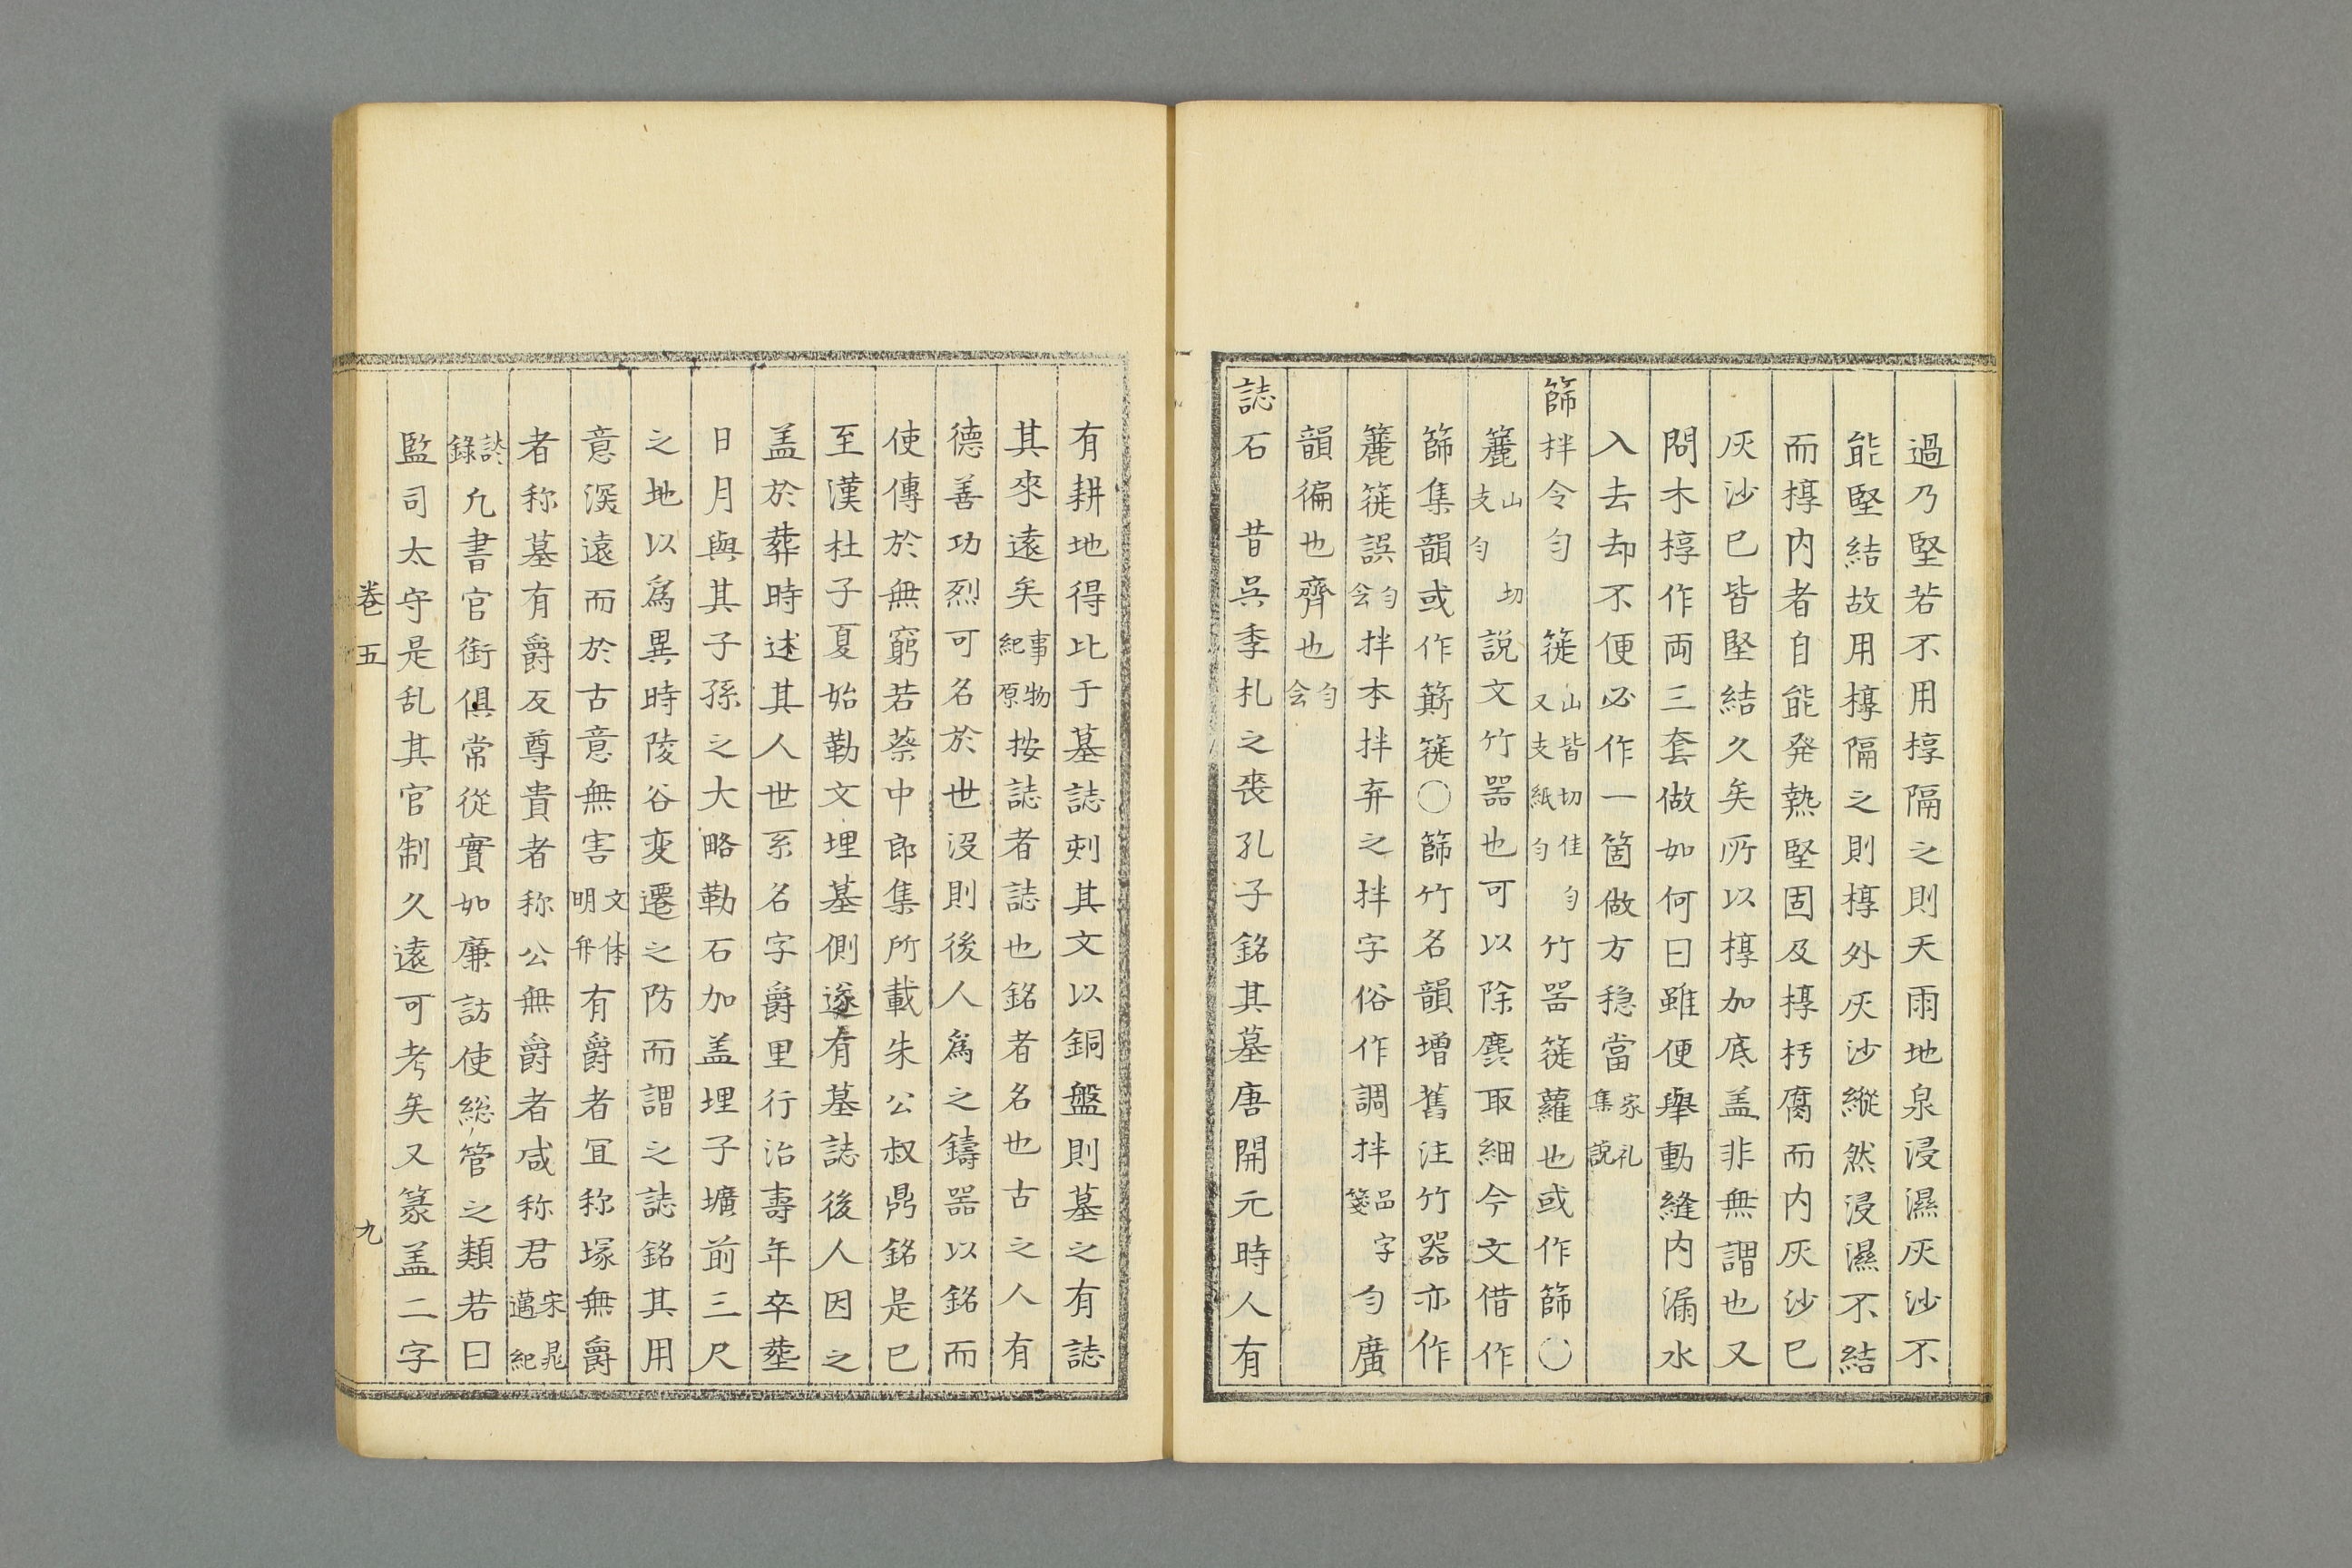 過乃堅若不用椁隔之則天雨地泉浸濕灰沙不
能堅結故用椁隔之則椁外灰沙縱然浸濕不結
而椁内者自能発熱堅固及椁朽腐而内灰沙已
灰沙已皆堅結久矣所以椁加底盖非無謂也又
問木椁作両三套做如何曰雖便舉動縫内漏水
入去却不便必作一箇做方穏當家礼集說
篩拌令匀 簁山皆切佳匀又支紙匀竹器簁蘿也或作篩〇
簏山切支匀說文竹器也可以除麁取細今文借作
篩集韻或作簛簁〇篩竹名韻增舊注竹器亦作
簏簁誤匀会拌本拌弃之拌字俗作調拌品字箋匀廣
韻徧也齊也匀会
誌石 昔吳季札之喪孔子銘其墓唐開元時人有
有耕地得比于墓誌刻其文以銅盤則墓之有誌
其來遠矣事物紀原按誌者誌也銘者名也古之人有
德善功烈可名於世沒則後人爲之鑄器以銘而
使傳於無窮若蔡中郎集所載朱公叔鼎銘是已
至漢杜子夏始勒文埋墓側遂有墓誌後人因之
盖於葬時述其人世系名字爵里行治壽年卒塟
日月與其子孫之大略勒石加盖埋于壙前三尺
之地以爲異時陵谷変遷之防而謂之誌銘其用
意深遠而於古意無害文体明弁有爵者冝称塚無爵
者称墓有爵及尊貴者称公無爵者咸称君宋晁邁紀
談錄凢書官銜俱常從實如廉訪使総管之類若曰
監司太守是乱其官制久遠可考矣又篆盖二字
卷五 九